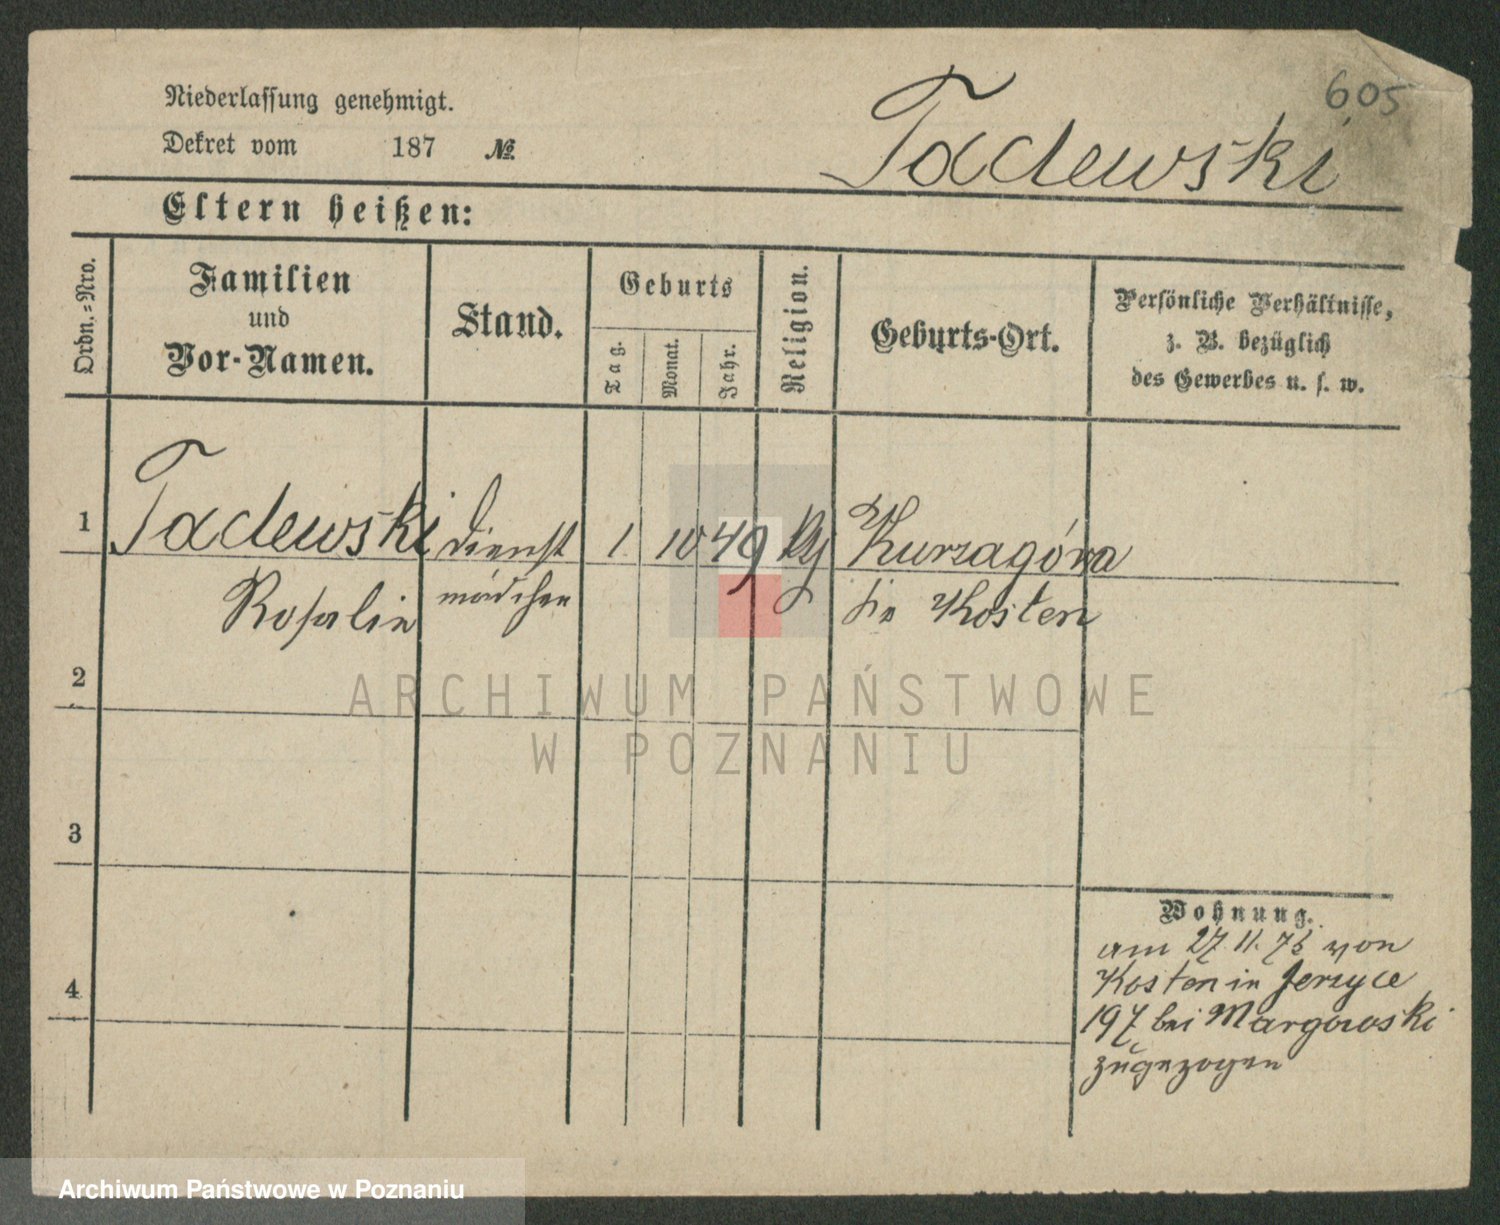 605
Niederlassung genehmigt.
Dekret vom 187 №
Tadewski
Eltern heißen:
Ordn.=Nro.
Familien
und
Vor-Namen.
Stand.
Geburts
Tag.
Monat.
Jahr.
Religion.
Geburts-Ort.
Persönliche Verhältnisse,
z. B. bezüglich
des Gewerbes u. s. w.
1 Tadewski Dienst 1 10 49 Kurzagóra
Rosalie mädchen Kosten
2
ARCHIWUM PAŃSTWOWE
W POZNANIU
3
Wohnung.
am 27.11. von
Kosten in Jerzyce
197 bei Margowski
zugezogen
4
Archiwum Państwowe w Poznaniu